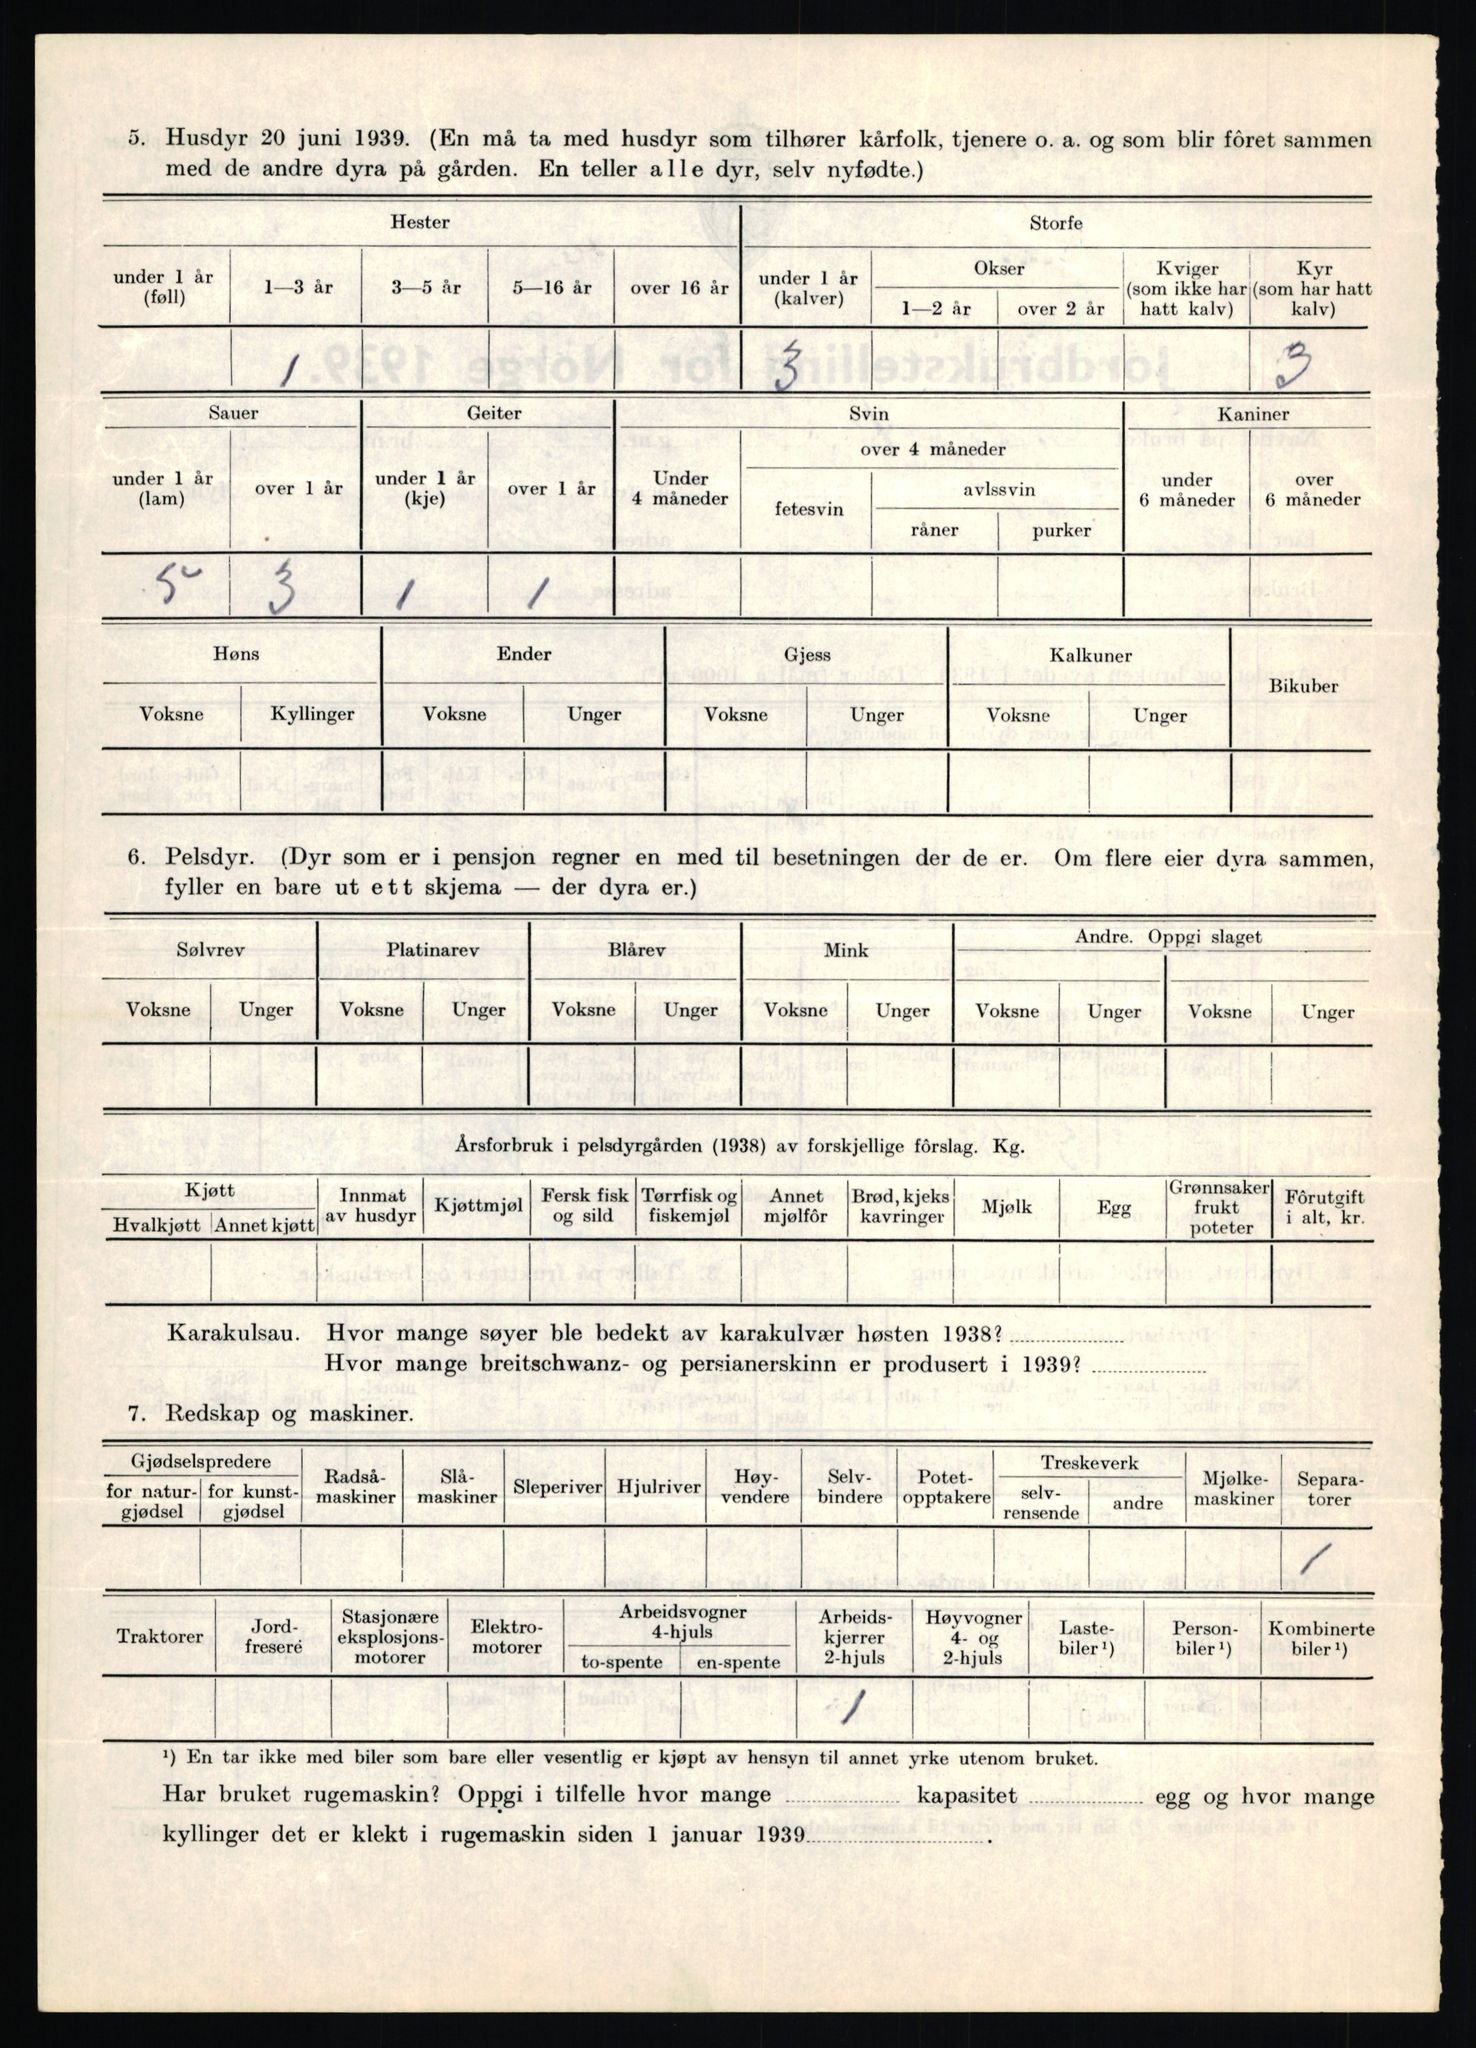 5. Husdyr 20 juni 1939. (En må ta med husdyr som tilhører kårfolk, tjenere o. a. og som blir fôret sammen
med de andre dyra på gården. En teller alle dyr, selv nyfødte.)
Hester Storfe
under 1 år (føll) 1—3 år 3—5 år 5—16 år over 16 år under 1 år (kalver) Okser 1—2 år over 2 år Kviger (som ikke har hatt kalv) Kyr (som har hatt kalv)
1 3 3
Sauer Geiter Svin Kaniner
under 1 år (lam) over 1 år under 1 år (kje) over 1 år Under 4 måneder over 4 måneder fetesvin avlssvin råner purker under 6 måneder over 6 måneder
5 3 1 1
Høns Ender Gjess Kalkuner Bikuber
Voksne Kyllinger Voksne Unger Voksne Unger Voksne Unger
6. Pelsdyr. (Dyr som er i pensjon regner en med til besetningen der de er. Om flere eier dyra sammen,
fyller en bare ut ett skjema — der dyra er.)
Sølvrev Platinarev Blårev Mink Andre. Oppgi slaget
Voksne Unger Voksne Unger Voksne Unger Voksne Unger Voksne Unger Voksne Unger
Årsforbruk i pelsdyrgården (1938) av forskjellige fôrslag. Kg.
Kjøtt Hvalkjøtt Annet kjøtt Innmat av husdyr Kjøttmjøl Fersk fisk og sild Tørrfisk og fiskemjøl Annet mjølfôr Brød, kjeks kavringer Mjølk Egg Grønnsaker frukt poteter Fôrutgift i alt, kr.
Karakulsau. Hvor mange søyer ble bedekt av karakulvær høsten 1938?
Hvor mange breitschwanz- og persianerskinn er produsert i 1939?
7. Redskap og maskiner.
Gjødselspredere for natur-gjødsel for kunst-gjødsel Radså-maskiner Slå-maskiner Sleperiver Hjulriver Høy-vendere Selv-bindere Potet-opptakere Treskeverk selv-rensende andre Mjølke-maskiner Separa-torer
1
Traktorer Jord-fresere Stasjonære eksplosjons-motorer Elektro-motorer Arbeidsvogner 4-hjuls to-spente en-spente Arbeids-kjerrer 2-hjuls Høyvogner 4- og 2-hjuls Laste-biler ¹) Person-biler ¹) Kombinerte biler ¹)
1
¹) En tar ikke med biler som bare eller vesentlig er kjøpt av hensyn til annet yrke utenom bruket.
Har bruket rugemaskin? Oppgi i tilfelle hvor mange kapasitet egg og hvor mange
kyllinger det er klekt i rugemaskin siden 1 januar 1939.